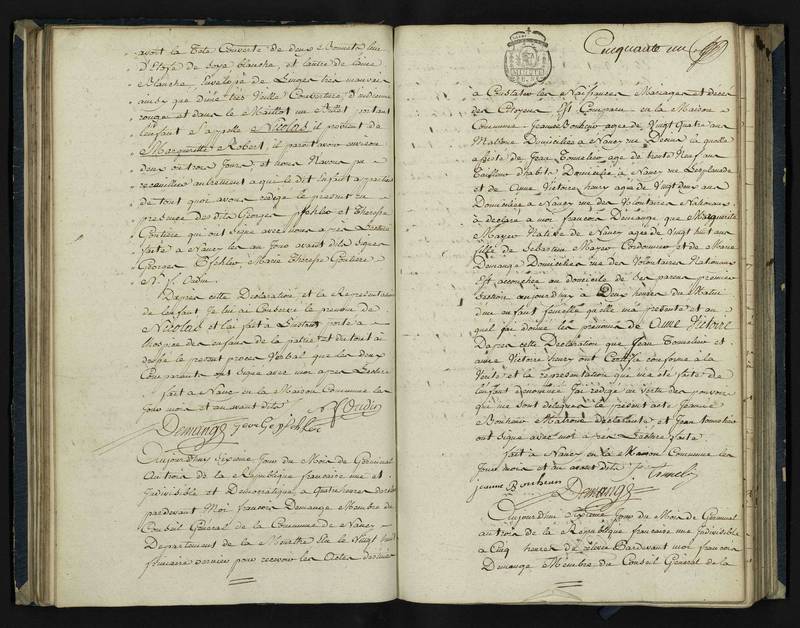 ayant la Tete Couverte de deux Bonnets l'un
d'Etofe de soye blanche, et l'autre de laine
Blanche, Envelopé de Linges très mauvais
ainsy que d'une très Vieille Couverture d'indienne
rouge et dans le Maillot un Billet portant
l'enfant s'appelle Nicolas il provient de
Marguerite Robert, il paroit avoir environ
deux ou trois Jours et nous n'avons pu
recueillir autrement a que le dit Enfant a
de tout quoi avons rédigé le present en
presence des dits Georges et Therese
Gontiere qui ont signé avec nous après Lecture
faite à Nancy les an Jour avant dits signes
Georges Marie Therese Gontiere
D'apres cette Déclaration et la Représentation
de l'enfant Je lui ai Conservé le prenom de
Nicolas et l'ai fait à L'instant porter à
hospice des enfans de la patrie et du tout ai
dressé le present proces Verbal que les deux
Comparants ont signé avec moi apres Lecture
fait à Nancy en la Maison Commune les
Jour mois et an avant dits
Demange
Aujourd'huy sixieme Jour du Mois de Germinal
An trois de la République francaise une et
Indivisible et Démocratique, à Quatre heures
pardevant Moi francois Demange Membre du
Conseil Général de la Commune de Nancy
Département de la Meurthe Elu le Vingt huit
frimaire dernier pour recevoir les Actes destinés
Cinquante un
à Constater les Naissances Mariages et deces
des Citoyens Est Comparu en la Maison
Commune Jeanne Bonheur agée de Vingt Quatre ans
Matrone Domiciliée à Nancy rue la quelle
assistée de Jean Tonnelier agé de trente Neuf ans
Tailleur d'habits Domicilié à Nancy rue
et de Anne Victoire henry agée de Vingt deux ans
Domiciliée à Nancy rue des Volontaires Nationaux
à déclaré à moi francois Demange que Marguerite
Mayer Native de Nancy agée de Vingt huit ans
fille de Sebastien Mayer Cordonnier et de Marie
Demange Domiciliés rue des Volontaires Nationaux
Est accouchée au domicile de ses parens premiere
Section aujourd'huy à Deux heures du Matin
d'une enfant femelle qu'elle m'a présenté et au
quel j'ai donné les prénoms de Anne Victoire
D'apres cette Déclaration que Jean Tonnelier et
anne Victoire henry ont Certifié conforme à la
Verité et la représentation que m'a été faite de
l'enfant dénommé J'ai rédigé en Vertu des pouvoirs
qui me sont délégués le présent acte Jeanne
Bonheur Matrone Déclarante et Jean tonnelier
ont signé avec moi apres Lecture faite
fait à Nancy en la Maison Commune les
Jour mois et an avant dits
jeanne Bonheur
Demange
Aujourd'huy sixieme Jour du Mois de Germinal
an trois de la République francaise une Indivisible
à Cinq heures de relevée Pardevant moi francois
Demange Membre du Conseil Général de la